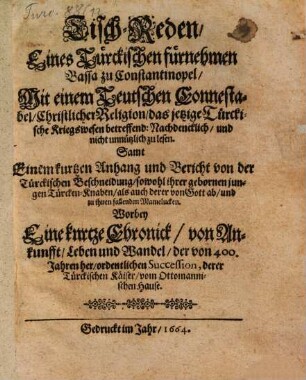 Tisch-Reden/
Eines Türckischen fürnehmen
Bassa zu Constantinopel/
Mit einem Teutschen Connesta-
bel/Christlicher Religion/das jetzige Türcki-
sche Kriegswesen betreffend: Nachdencklich/und
nicht unnützlich zu lesen.
Samt
Einem kurtzen Anhang und Bericht von der
Türckischen Beschneidung/sowohl ihrer gebornen jun-
gen Türcken-Knaben/als auch derer von Gott ab/und
zu ihnen fallenden Mamelucken.
Worbey
Eine kurtze Chronick/von An-
kunfft/Leben und Wandel/der von 400.
Jahren her/ordentlichen Succession, derer
Türckischen Käiser/vom Ottomanni-
schen Hause.
Gedruckt im Jahr/1664.